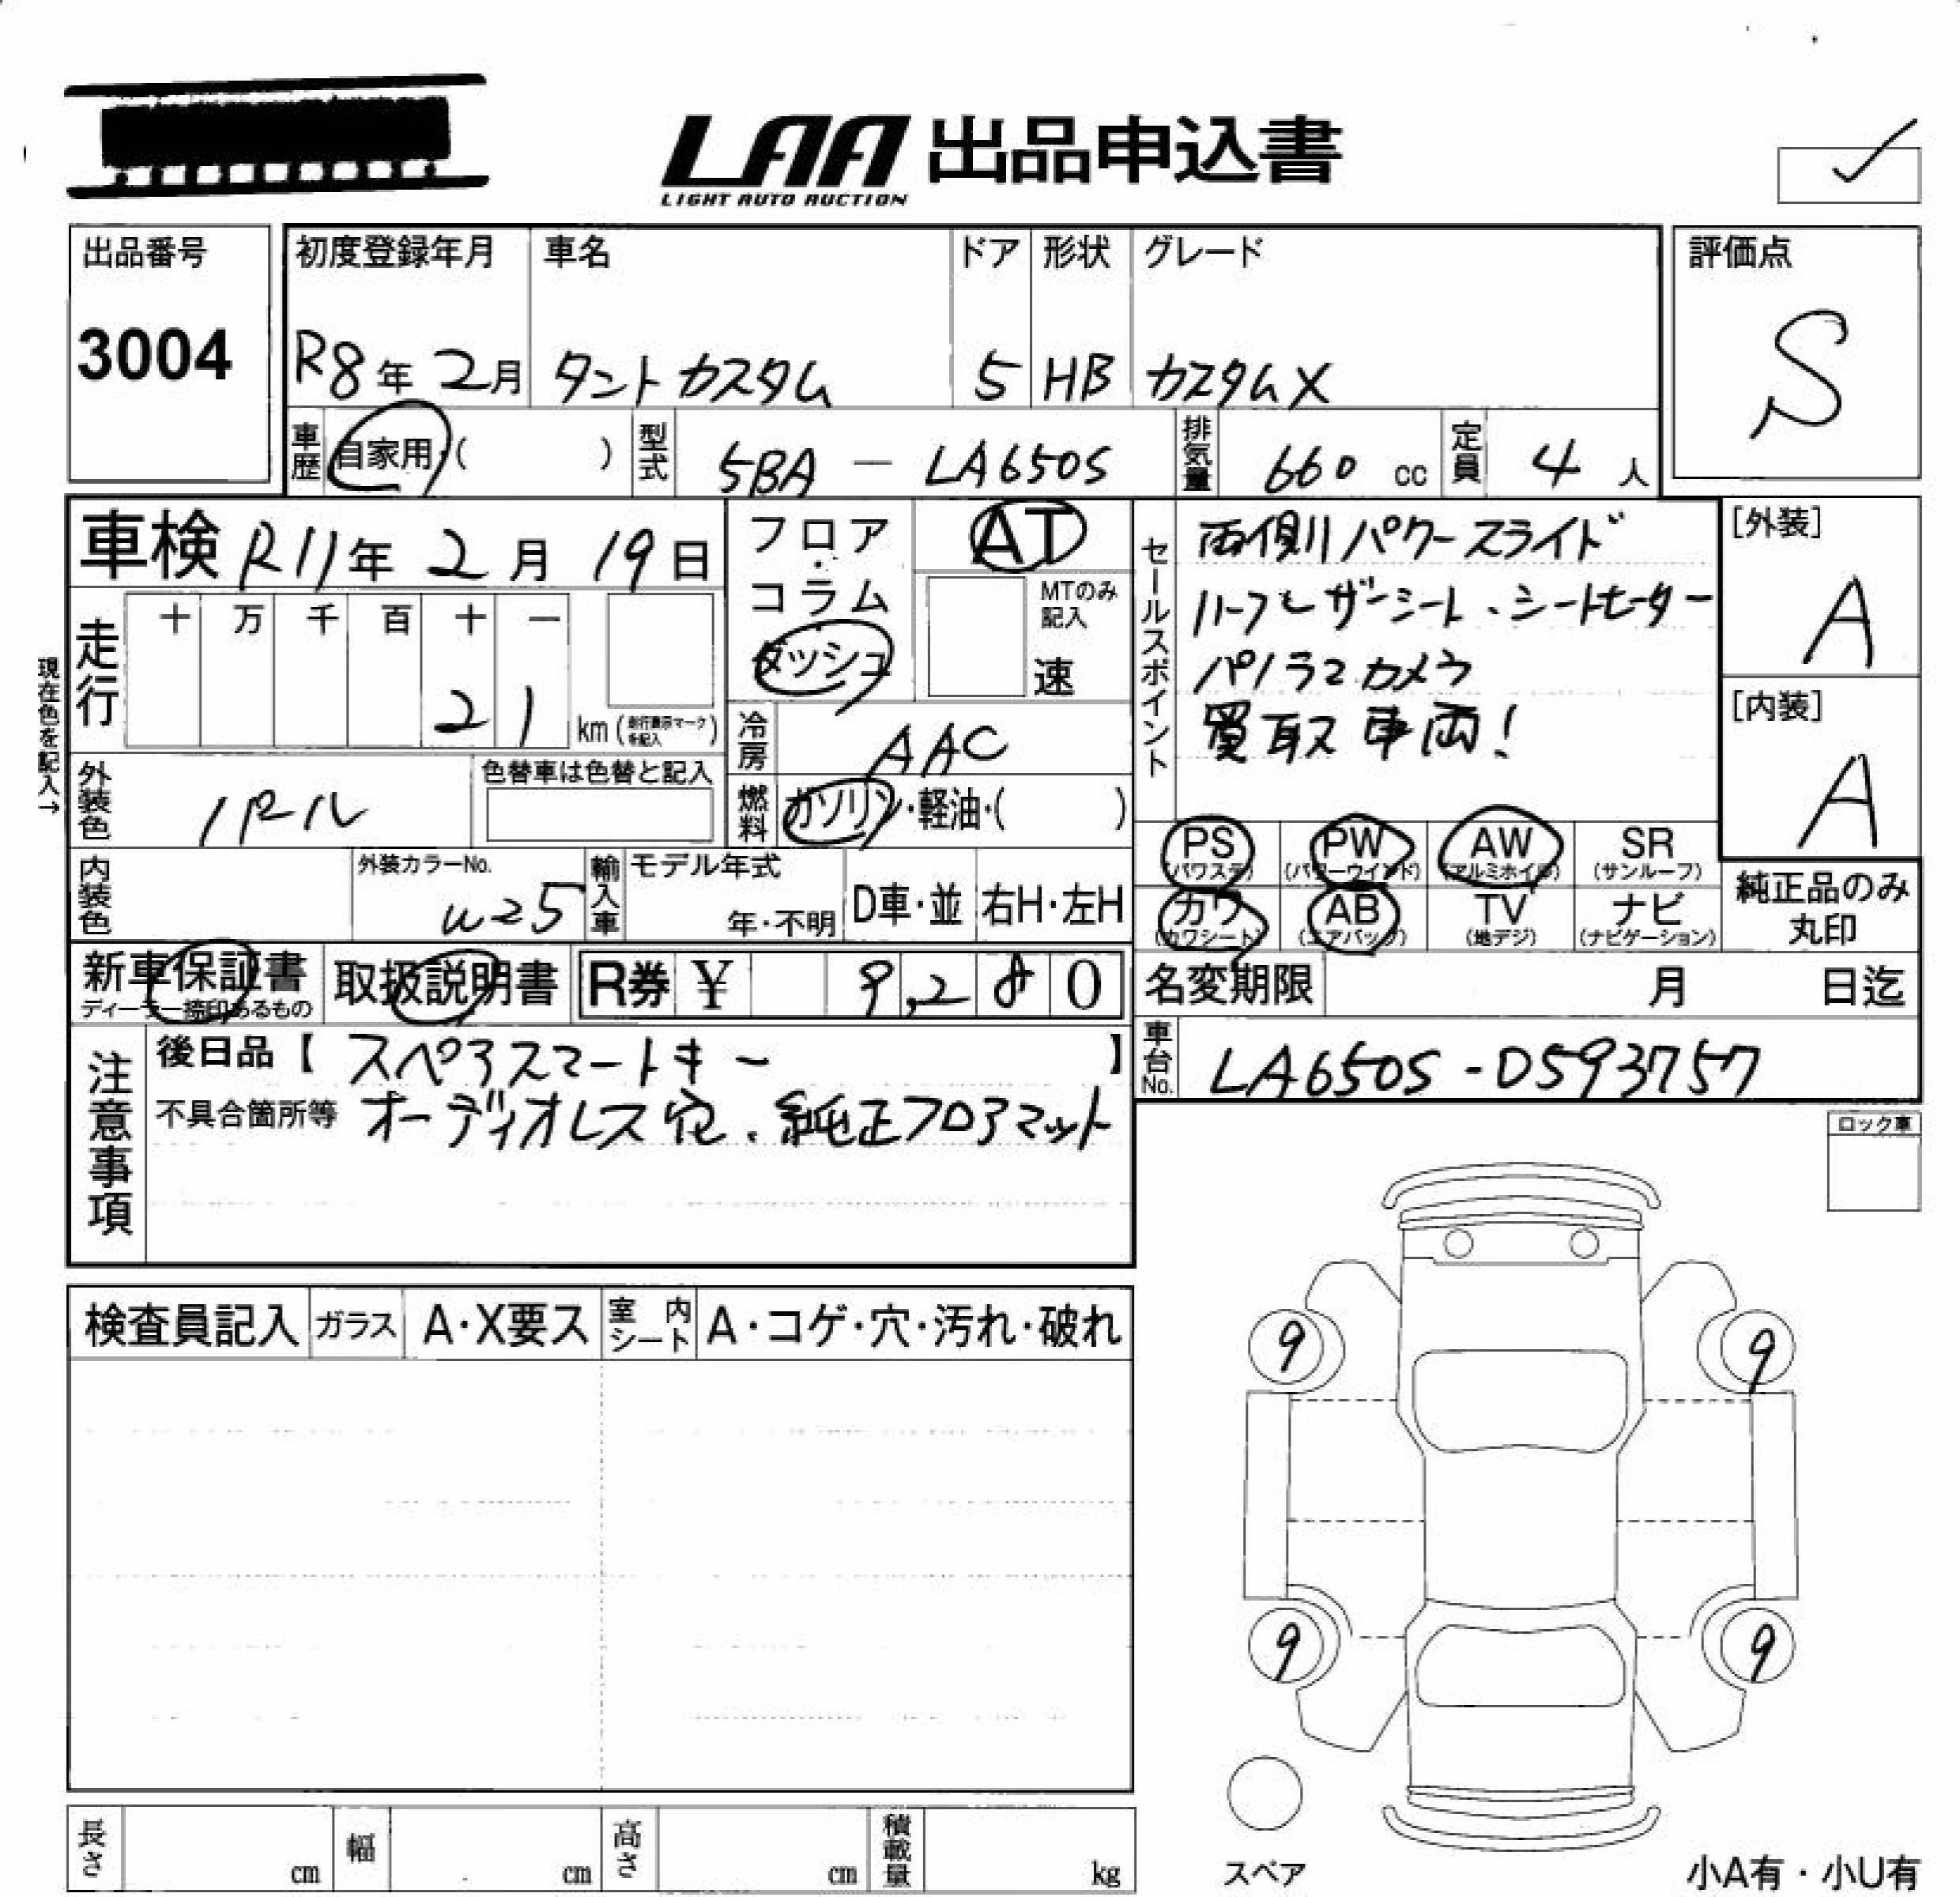 LAA 出品申込書
LIGHT AUTO AUCTION
出品番号
3004
初度登録年月 車名 ドア 形状 グレード
R8年 2月 タントカスタム 5 HB カスタムX
評価点
S
車歴 自家用・( ) 型式 5BA - LA650S 排気量 660 cc 定員 4 人
車検 R11年 2月 19日
フロア・コラム ダッシュ
AT
MTのみ記入
速
走行 十 万 千 百 十 一
21 km (走行表示マークを記入)
現在色を記入→
冷房 AAC
外装色 パール
色替車は色替と記入
燃料 ガソリン・軽油・( )
内装色
外装カラーNo.
W25
輸入車 モデル年式
年・不明 D車・並 右H・左H
セールスポイント
両側パワースライド
ハーフレザーシート、シートヒーター
パノラマカメラ
買取車両!
[外装]
A
[内装]
A
PS (パワステ) PW (パワーウインド) AW (アルミホイル) SR (サンルーフ)
カワ (カワシート) AB (エアバッグ) TV (地デジ) ナビ (ナビゲーション)
純正品のみ
丸印
新車保証書 取扱説明書 R券 ¥ 9,280
ディーラー捺印あるもの
名変期限 月 日迄
車台No. LA650S-0593757
注意事項
後日品【 スペアスマートキー 】
不具合箇所等 オーディオレス 純正フロアマット
ロック車
検査員記入 ガラス A・X要ス 室内シート A・コゲ・穴・汚れ・破れ
9 9
9 9
スペア
小A有・小U有
長さ cm 幅 cm 高さ cm 積載量 kg